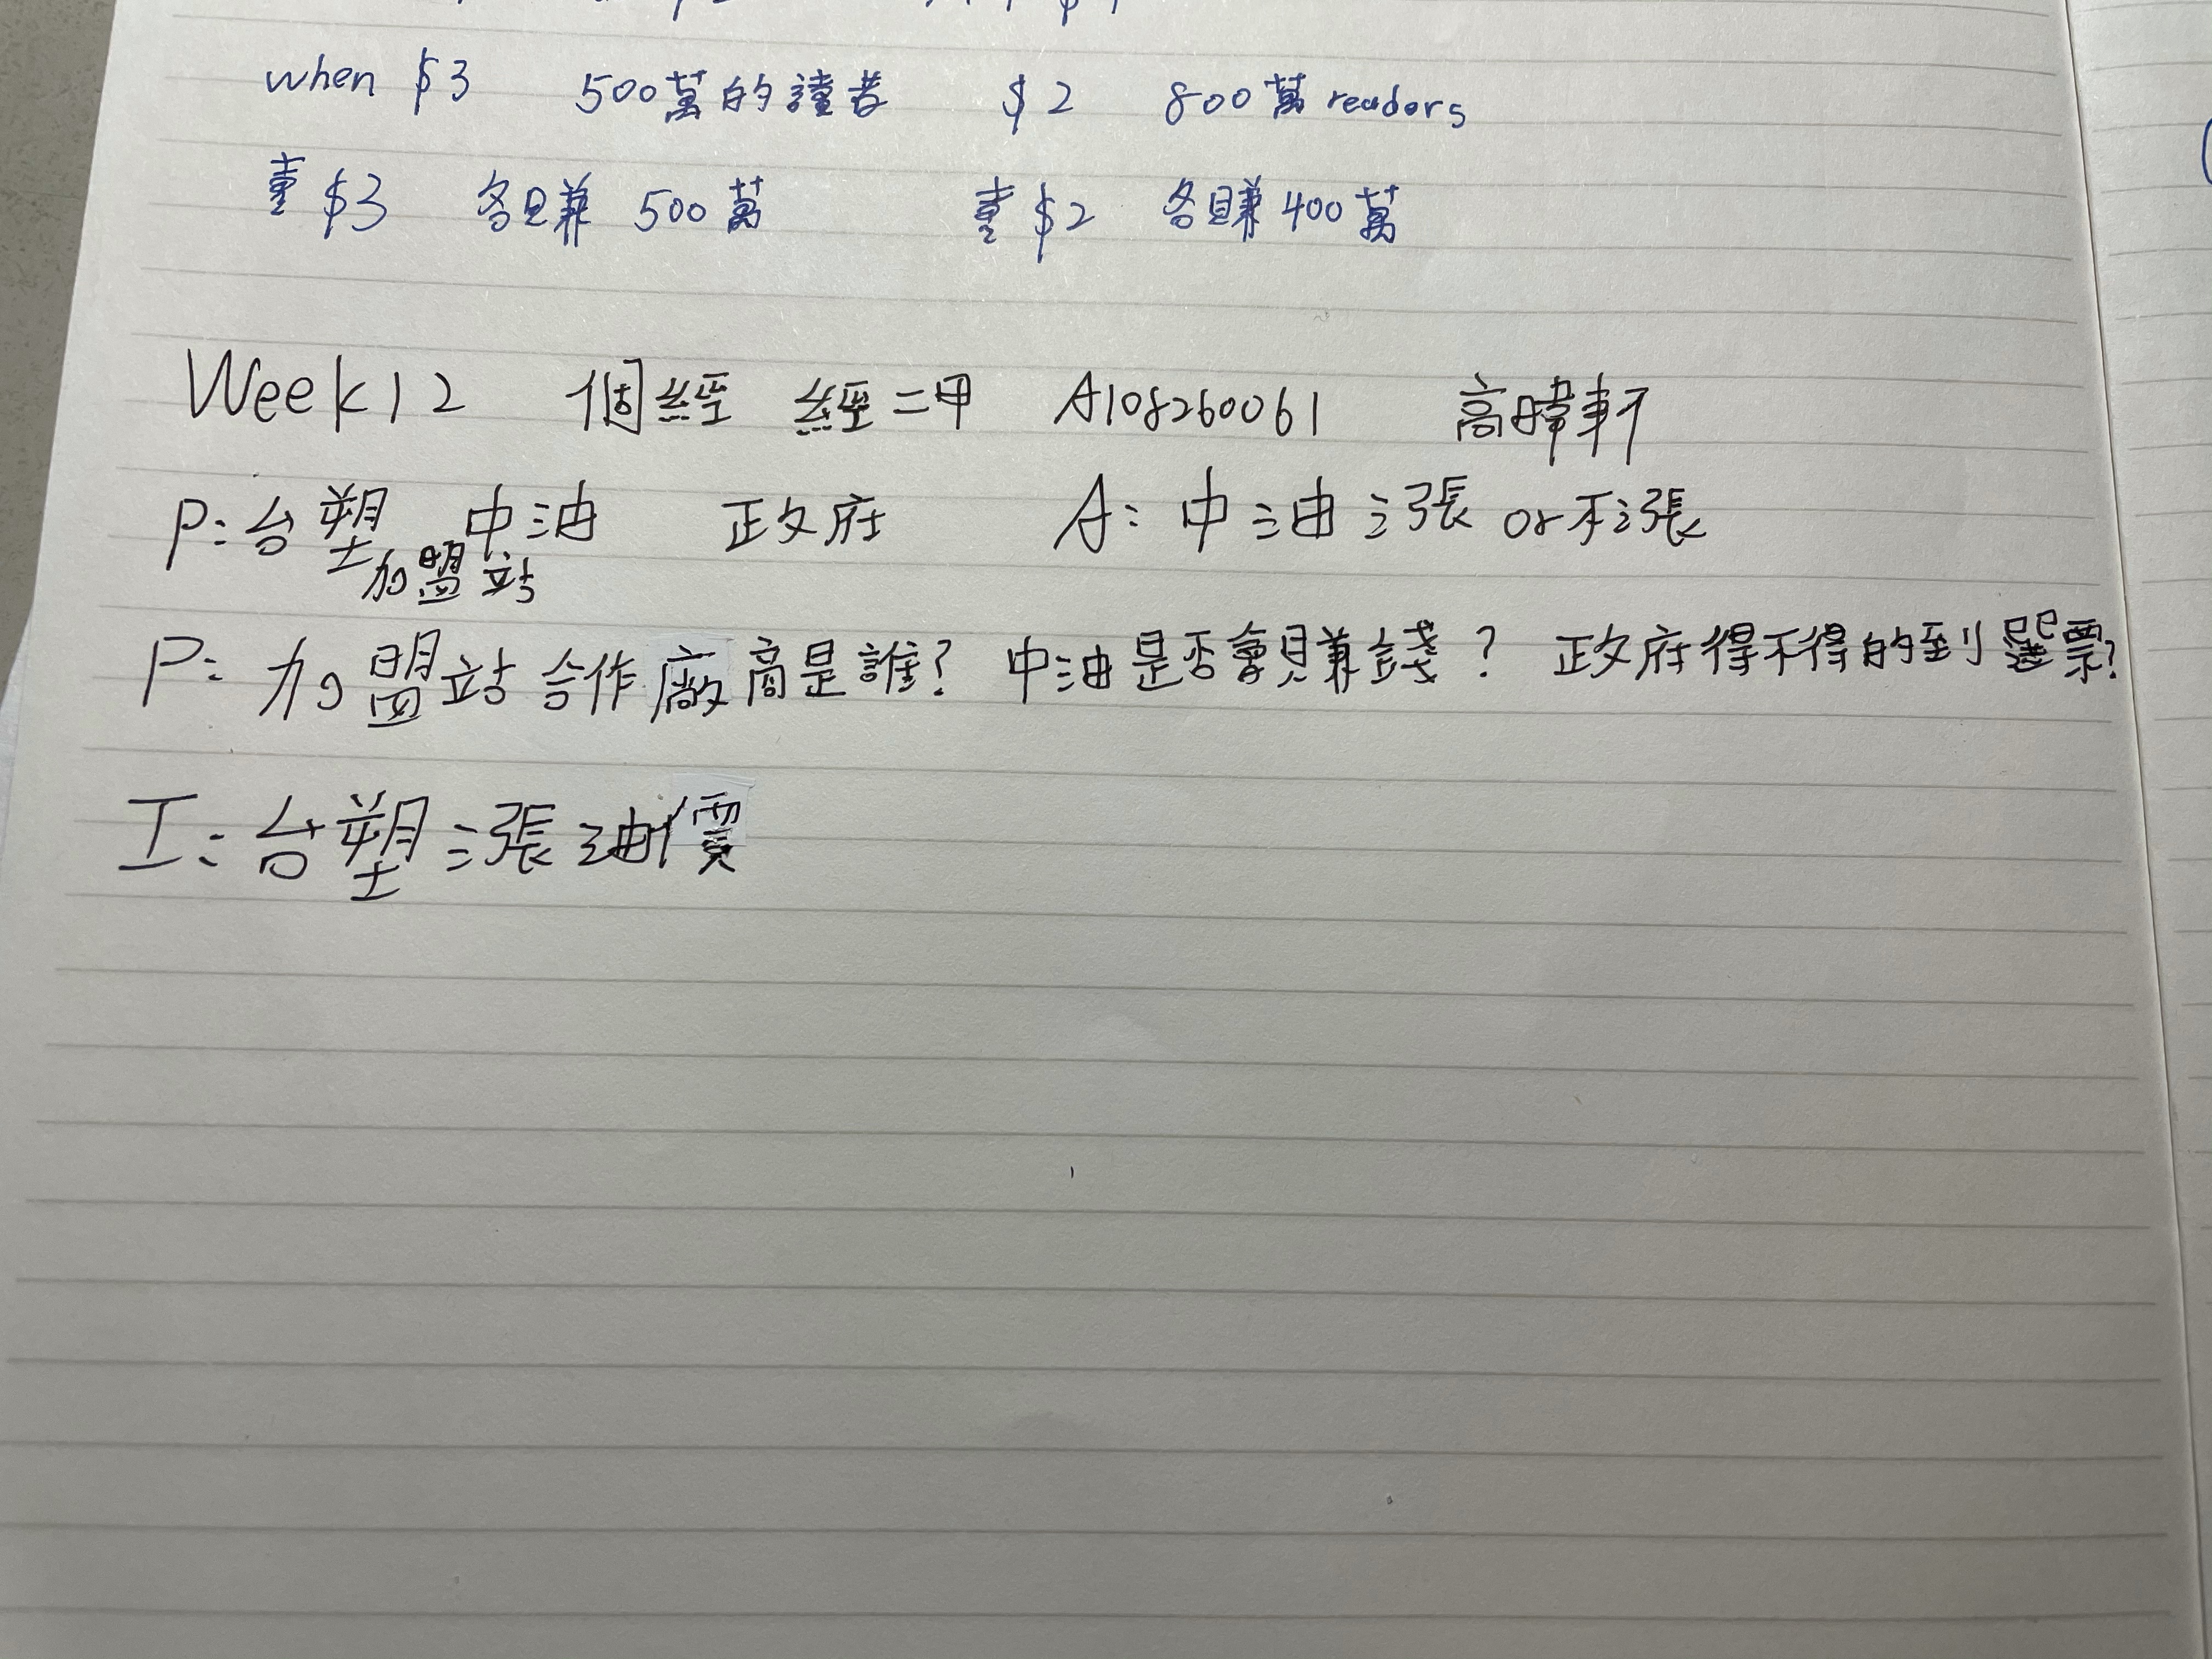 when $3 500萬的讀者 $2 800萬 readors
當 $3 各賺 500萬 當 $2 各賺 400萬
Week12 個經 經二甲 A108260061 高暐軒
P:台塑 中油 政府 A:中油漲 or 不漲
加盟站
P:加盟站合作廠商是誰? 中油是否會賺錢? 政府得不得的到選票?
I:台塑漲油價